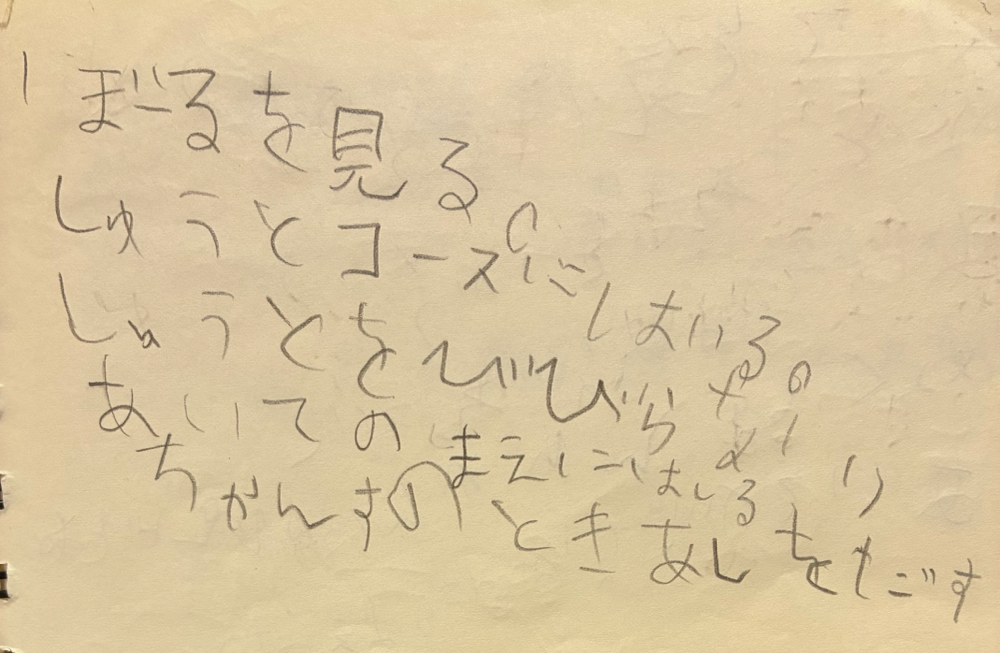 ぼーるを見る。
しゅうとコースにはいる。
しゅうとをびびら
あいてのまえにはしる
ちかんすのときあしを